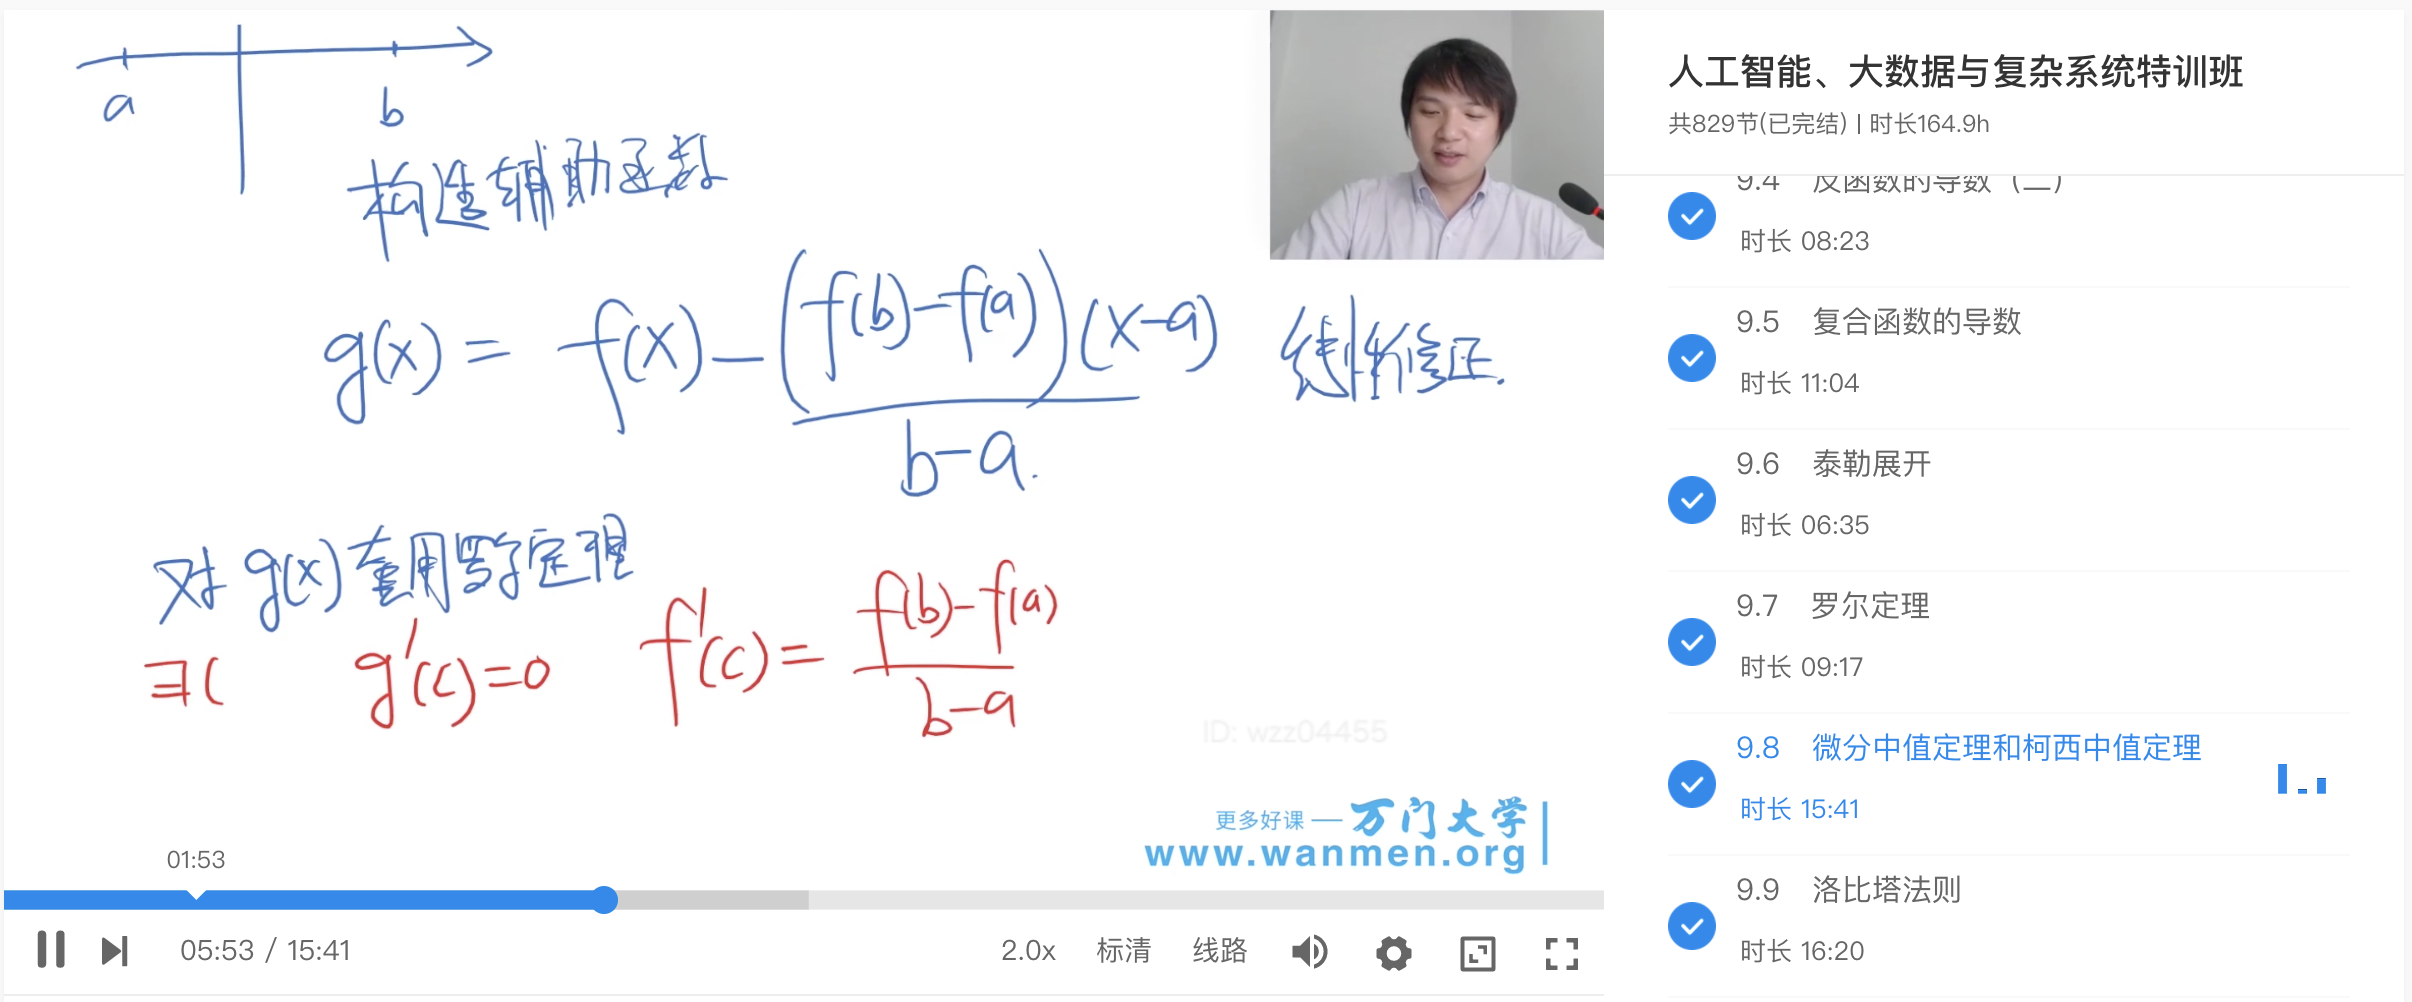 a
b
构造辅助函数
g(x) = f(x) - (f(b)-f(a))(x-a) 线性修正.
b-a.
对 g(x) 套用罗尔定理
∃c g'(c)=0 f'(c)= f(b)-f(a)
b-a
ID: wzz04455
更多好课 — 万门大学
www.wanmen.org
01:53
05:53 / 15:41
2.0x 标清 线路
人工智能、大数据与复杂系统特训班
共829节(已完结) | 时长164.9h
9.4 反函数的导数（二）
时长 08:23
9.5 复合函数的导数
时长 11:04
9.6 泰勒展开
时长 06:35
9.7 罗尔定理
时长 09:17
9.8 微分中值定理和柯西中值定理
时长 15:41
9.9 洛比塔法则
时长 16:20